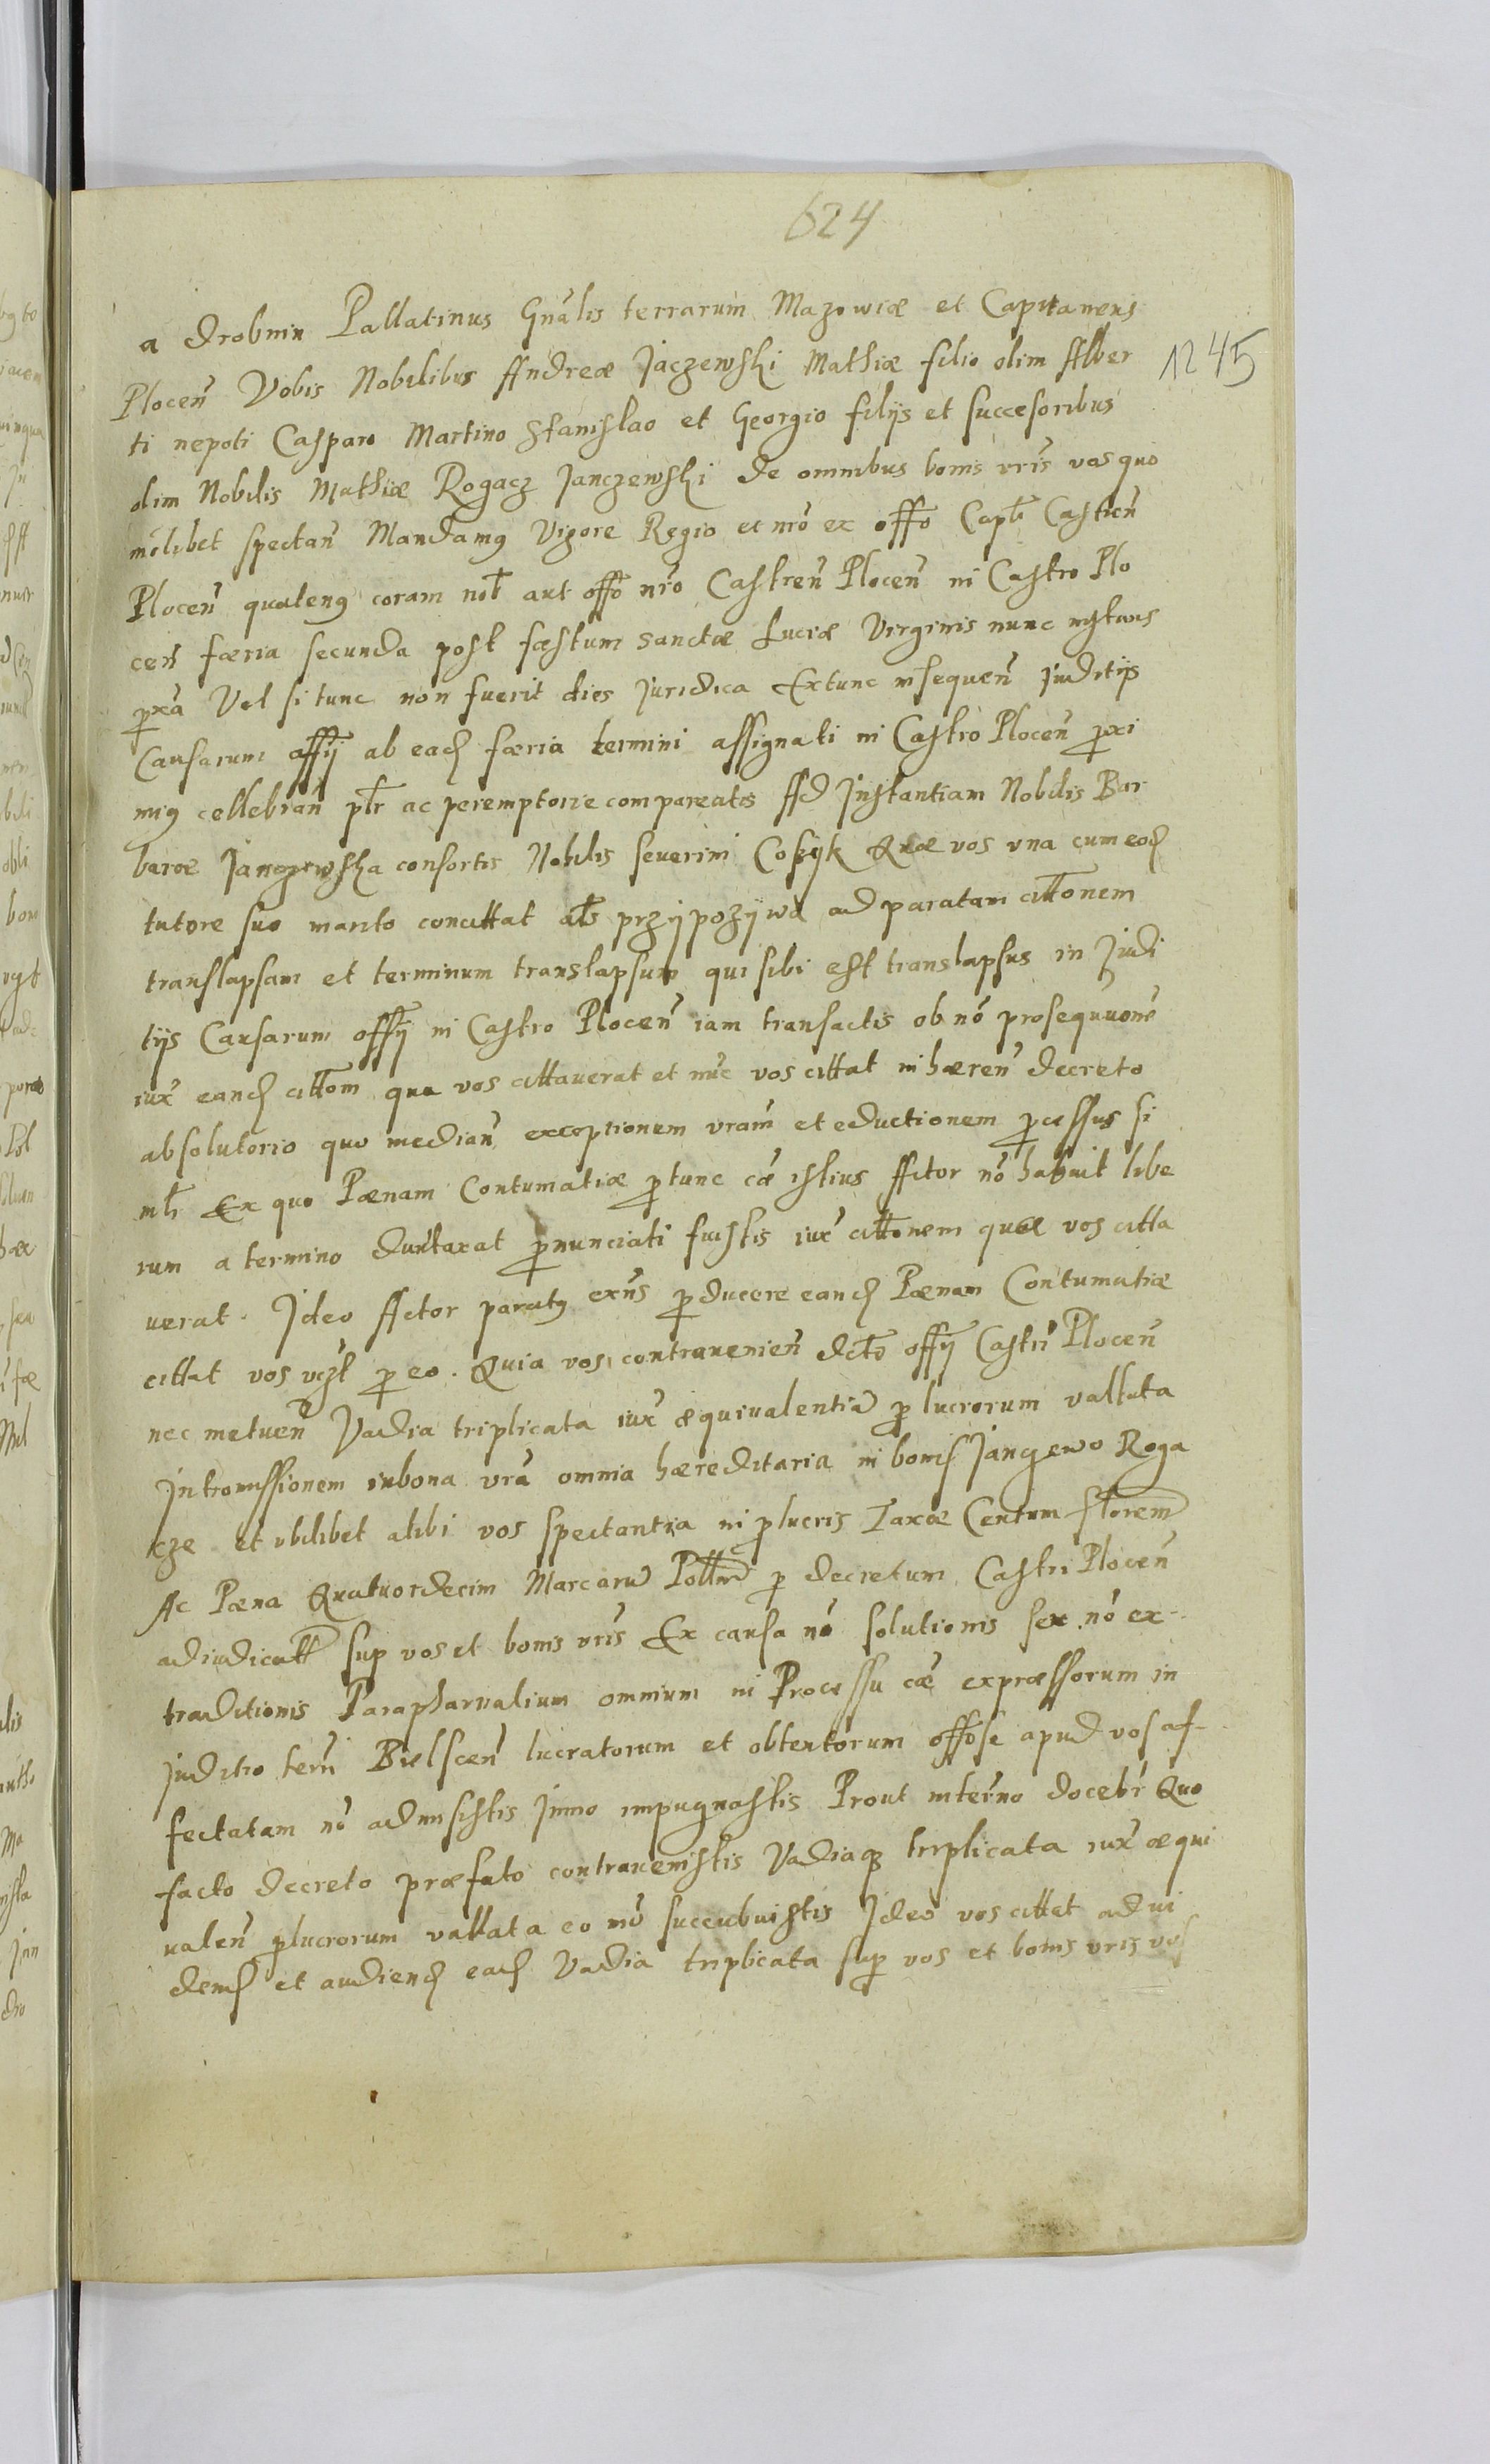 624
1245
a Drobnin Pallatinus Gnalis terrarum Mazowiæ et Capitaneus
Plocen̄ Vobis Nobilibus Andreæ Jaczewski Mathiæ filio olim Alber
ti nepoti Casparo Martino Stanislao et Georgio filijs et succesoribus
olim Nobilis Mathiæ Rogacz Janczewski de omnibus bonis vrīs vos quo
mōlibet spectan̄ Mandamꝯ Vigore Regio et nrō ex offo Capłi Castren̄
Plocen̄ quatenꝯ coram nob̄ aut offo nrō Castren̄ Plocen̄ in Castro Plo
cen̄ færia secunda post fæstum sanctæ Luciæ Virginis nunc instans
ꝓxā Vel si tunc non fuerit dies Juridica Extunc insequen̄ Juditijs
Causarum offij ab eađ færia termini assignati in Castro Plocen̄ ꝓxi
mꝯ cellebran̄ płr ac peremptorie compareatis Ad Instantiam Nobilis Bar
baræ Janczewska consortis Nobilis Seuerini Coszyk Quæ vos vna cum eođ
tutore suo marito concittat ałs przÿpozÿwa ad paratam citt̄onem
translapsam et terminum translapsum qui sibi est translapsus in Judi
tijs Causarum offij in Castro Plocen̄ iam transactis ob nō prosequuonē
iux̄ eanđ citt̄om qua vos cittauerat et nūc vos cittat inhæren̄ decreto
absolutorio quo median̄ exceptionem vram̄ et eductionem ꝓcessus si
młi Ex quo Pænam Contumatiæ ꝓtunc cæ istius Actor nō habuit libe
rum a termino duntaxat ꝓnunciati fuistis iux̄ citt̄onem quæ vos citta
uerat. Ideo Actor paratꝯ exn̄s ꝓducere eanđ Pænam Contumatiæ
cittat vos vgł ꝓ eo. Quia vos contrauenien̄ dcto offij Castrī Plocen̄
nec metuen̄ Vadia triplicata iux̄ æquiualentia ꝓ lucrorum vallata
Intromissionem in bona vrā omnia hæreditaria in bonis Janczewo Roga
cze et vbilibet alibi vos spectantia in ꝓlucris Taxæ Centum florem̄
Ac Pæna Quatuordecim Marcarū Pollm̄ ꝑ decretum Castri Plocen̄
adiudicatt̄ suꝑ vos et bonis vrīs Ex causa nō solutionis seu nō ex-
traditionis Parapharnalium omnium in Processu cæ expræssorum in
Juditio terrī Bielscen̄ lucratorum et obtentorum offose apud vos af-
fectatam nō admisistis Jmmo impugnastis Prout inter̄no docebr̄ Quo
facto decreto præfato contrauenistis Vadiaqꝫ triplicata iux̄ æqui
ualen̄ ꝓlucrorum vallata eo mō succubuistis Ideo vos cittat ad vi
denđ et audienđ eađ Vadia triplicata suꝑ vos et bonis vris